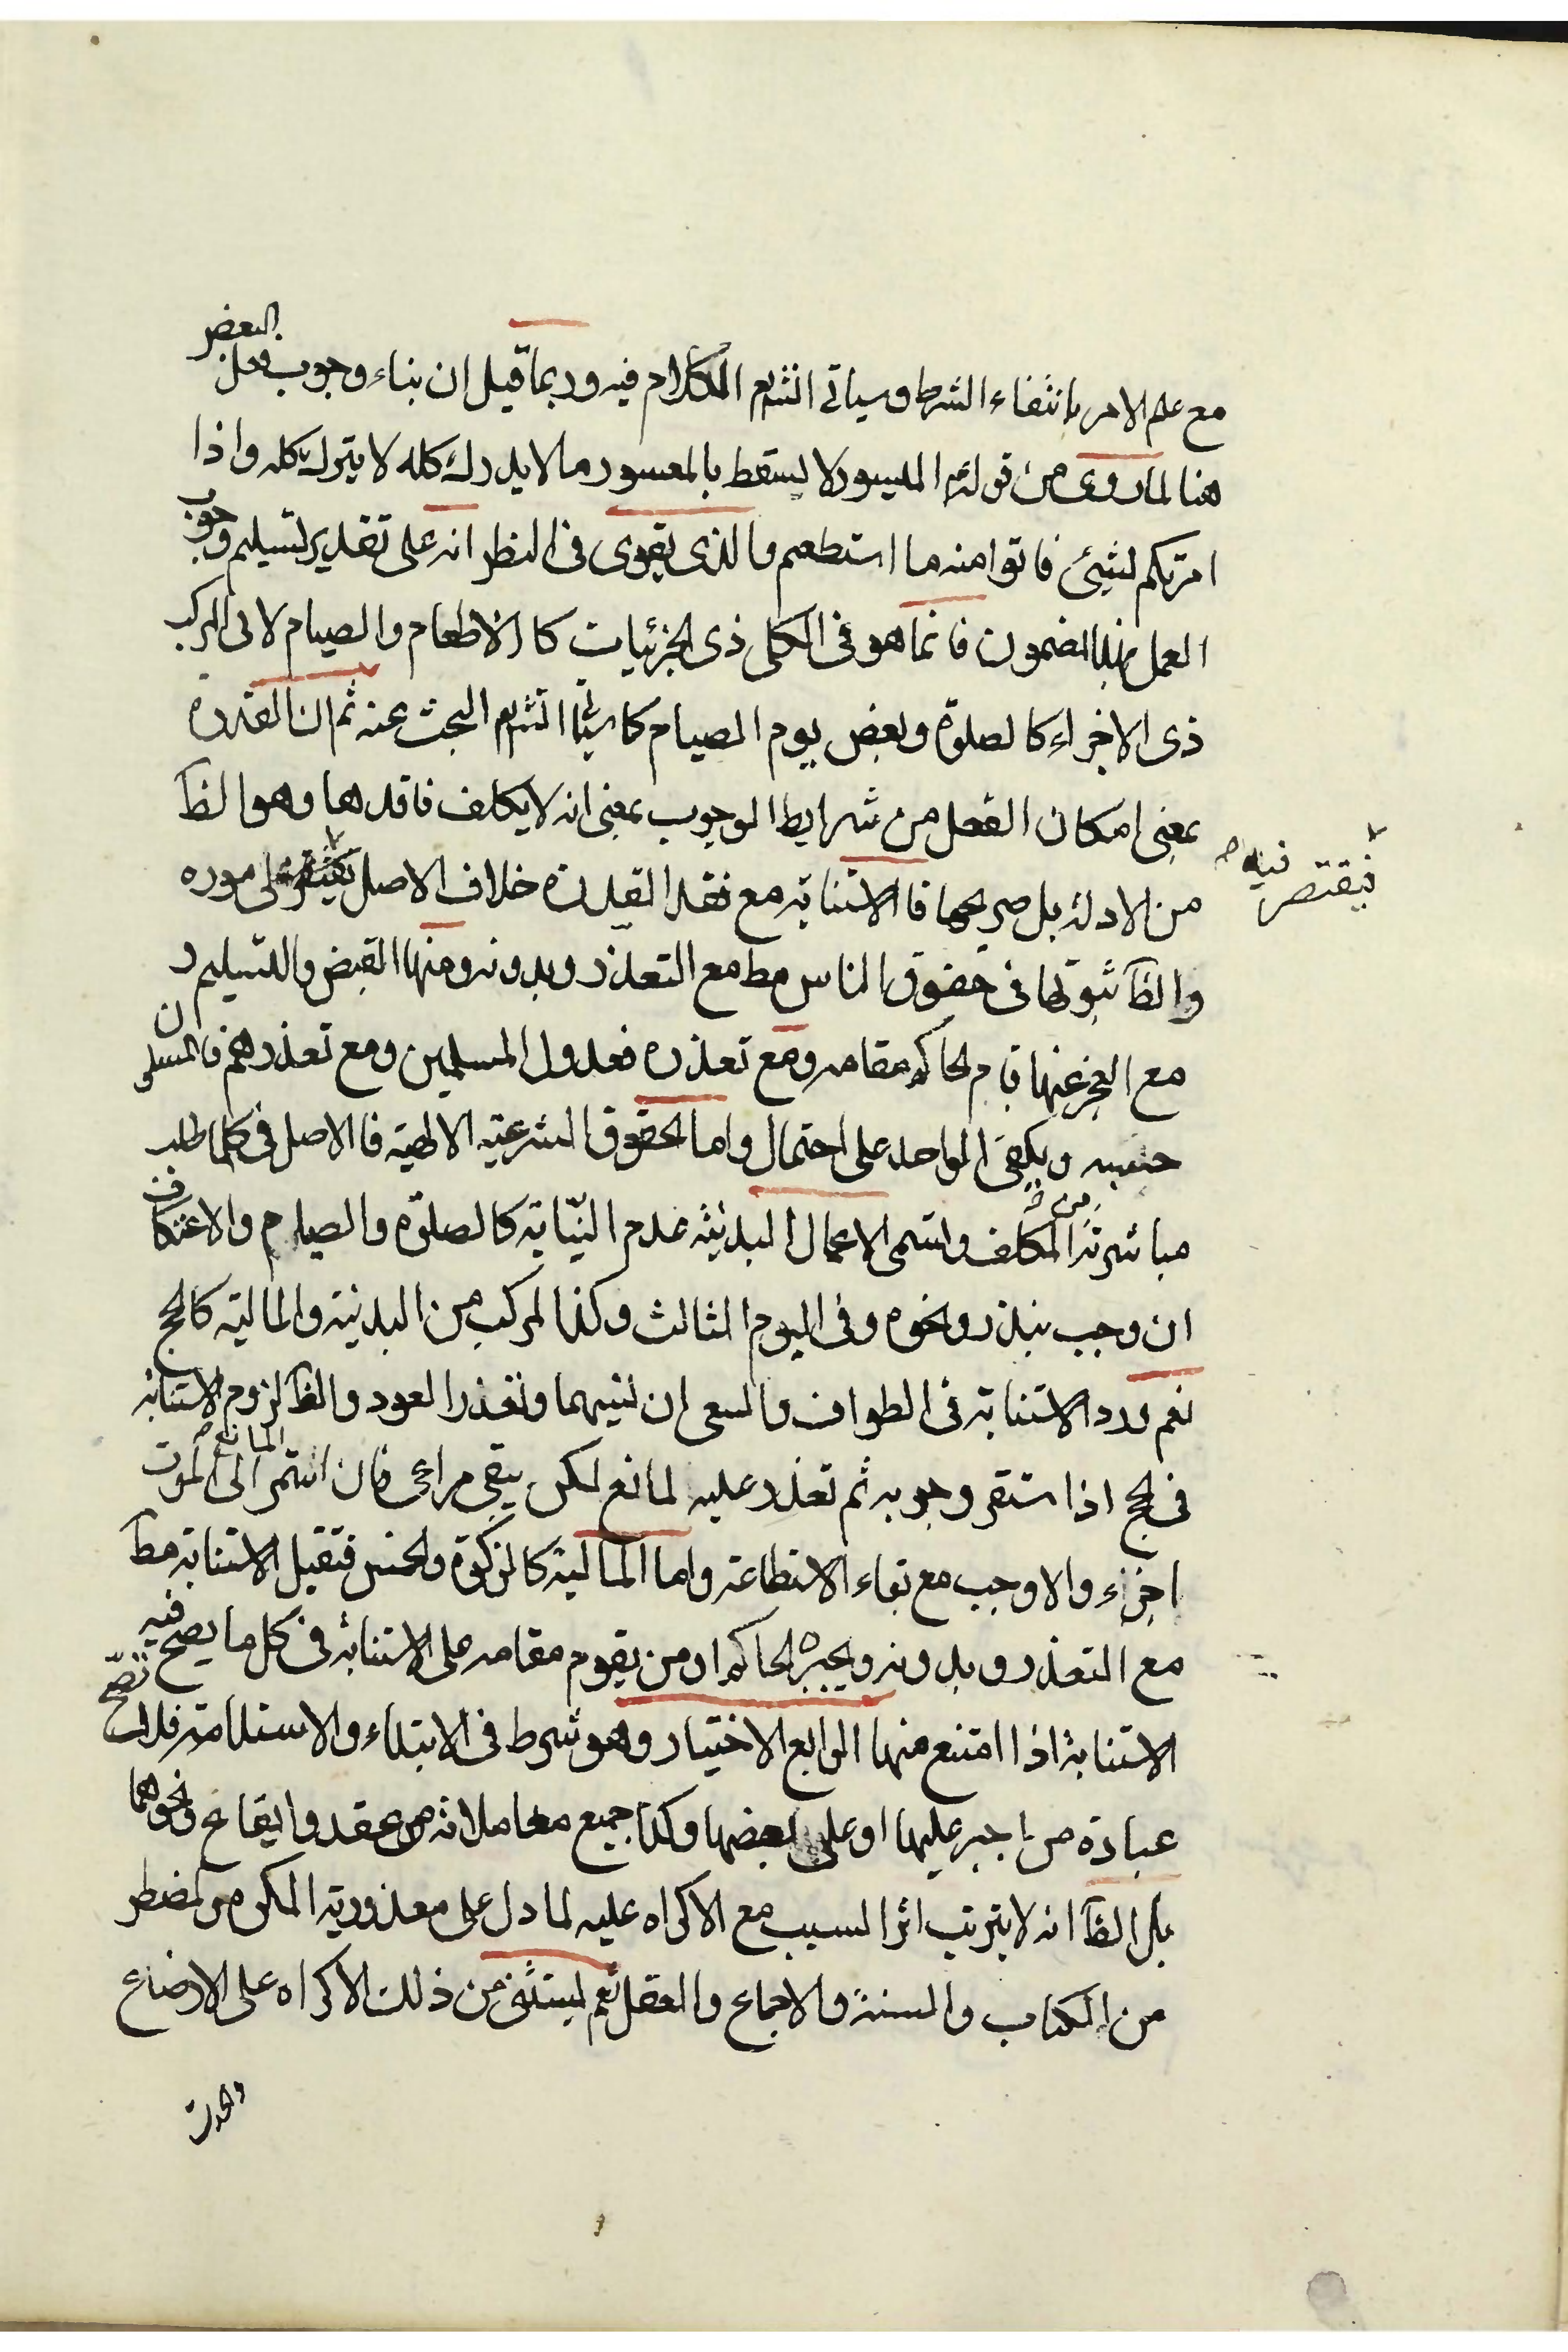 مع علم الامر بانتفاء الشرط وسياتى انشم الكلام فيه وربما قيل ان بناء وجوب فعل البعض
هنا لما روى من قوله الميسور لا يسقط بالمعسور ما لا يدرك كله لا يترك كله واذا
امرتكم بشيئ فاتوا منه ما استطعم والذى يقوى فى النظر انه على تقدير تسليم وجوب
العمل بهذا المضمون فانما هو فى الكلى ذى الجزئيات كالاطعام والصيام لا فى المركب
ذى الاجزاء كالصلوة وبعض يوم الصيام كما سياتى انشم البحث عنه ثم ان القدرة
بمعنى امكان الفعل من شرايط الوجوب بمعنى انه لا يكلف فاقدها وهو الظ
من الادلة بل صريحها فالاستنابة مع فقد القدرة خلاف الاصل على مورده
فيقتصر فيه صح
والظ ثبوتها فى حقوق الناس مط مع التعذر وبدونه ومنها القبض والتسليم و
مع العجز عنها قام الحاكم مقامه ومع تعذره فعدول المسلمين ومع تعذرهم فالمسلمون
حسبه ويكفى الواحد على احتمال واما الحقوق الشرعية الالهية فالاصل فى كلما طلب
مباشرته من المكلف وتسمى الاعمال البدنية عدم النيابة كالصلوة والصيام والاعتكاف
ان وجب بنذر ونحوه وفى اليوم الثالث وكذا المركب من البدنية والمالية كالحج
نعم ورد الاستنابة فى الطواف والسعى ان نسيهما وتعذر العود والظ لزوم الاستنابة
فى الحج اذا استقر وجوبه ثم تعذر عليه لمانع لكن يبقى مراعى فان استمر المانع الى الموت
اجزء والا وجب مع بقاء الاستطاعة واما المالية كالزكوة والخمس فتقبل الاستنابة مط
مع التعذر وبدونه ويجبره الحاكم او من يقوم مقامه على الاستنابة فى كل ما يصح فيه
الاستنابة اذا امتنع منها الرابع الاختيار وهو شرط فى الابتداء والاستدامة فلا تصح
عبادة من اجبر عليها او على بعضها وكذا جميع معاملاته من عقد وايقاع ونحوهما
بل الظ انه لا يترتب اثر السبب مع الاكراه عليه لما دل على معذورية المكره المضطر
من الكتاب والسنة والاجماع والعقل نعم يستثنى من ذلك الاكراه على الارضاع